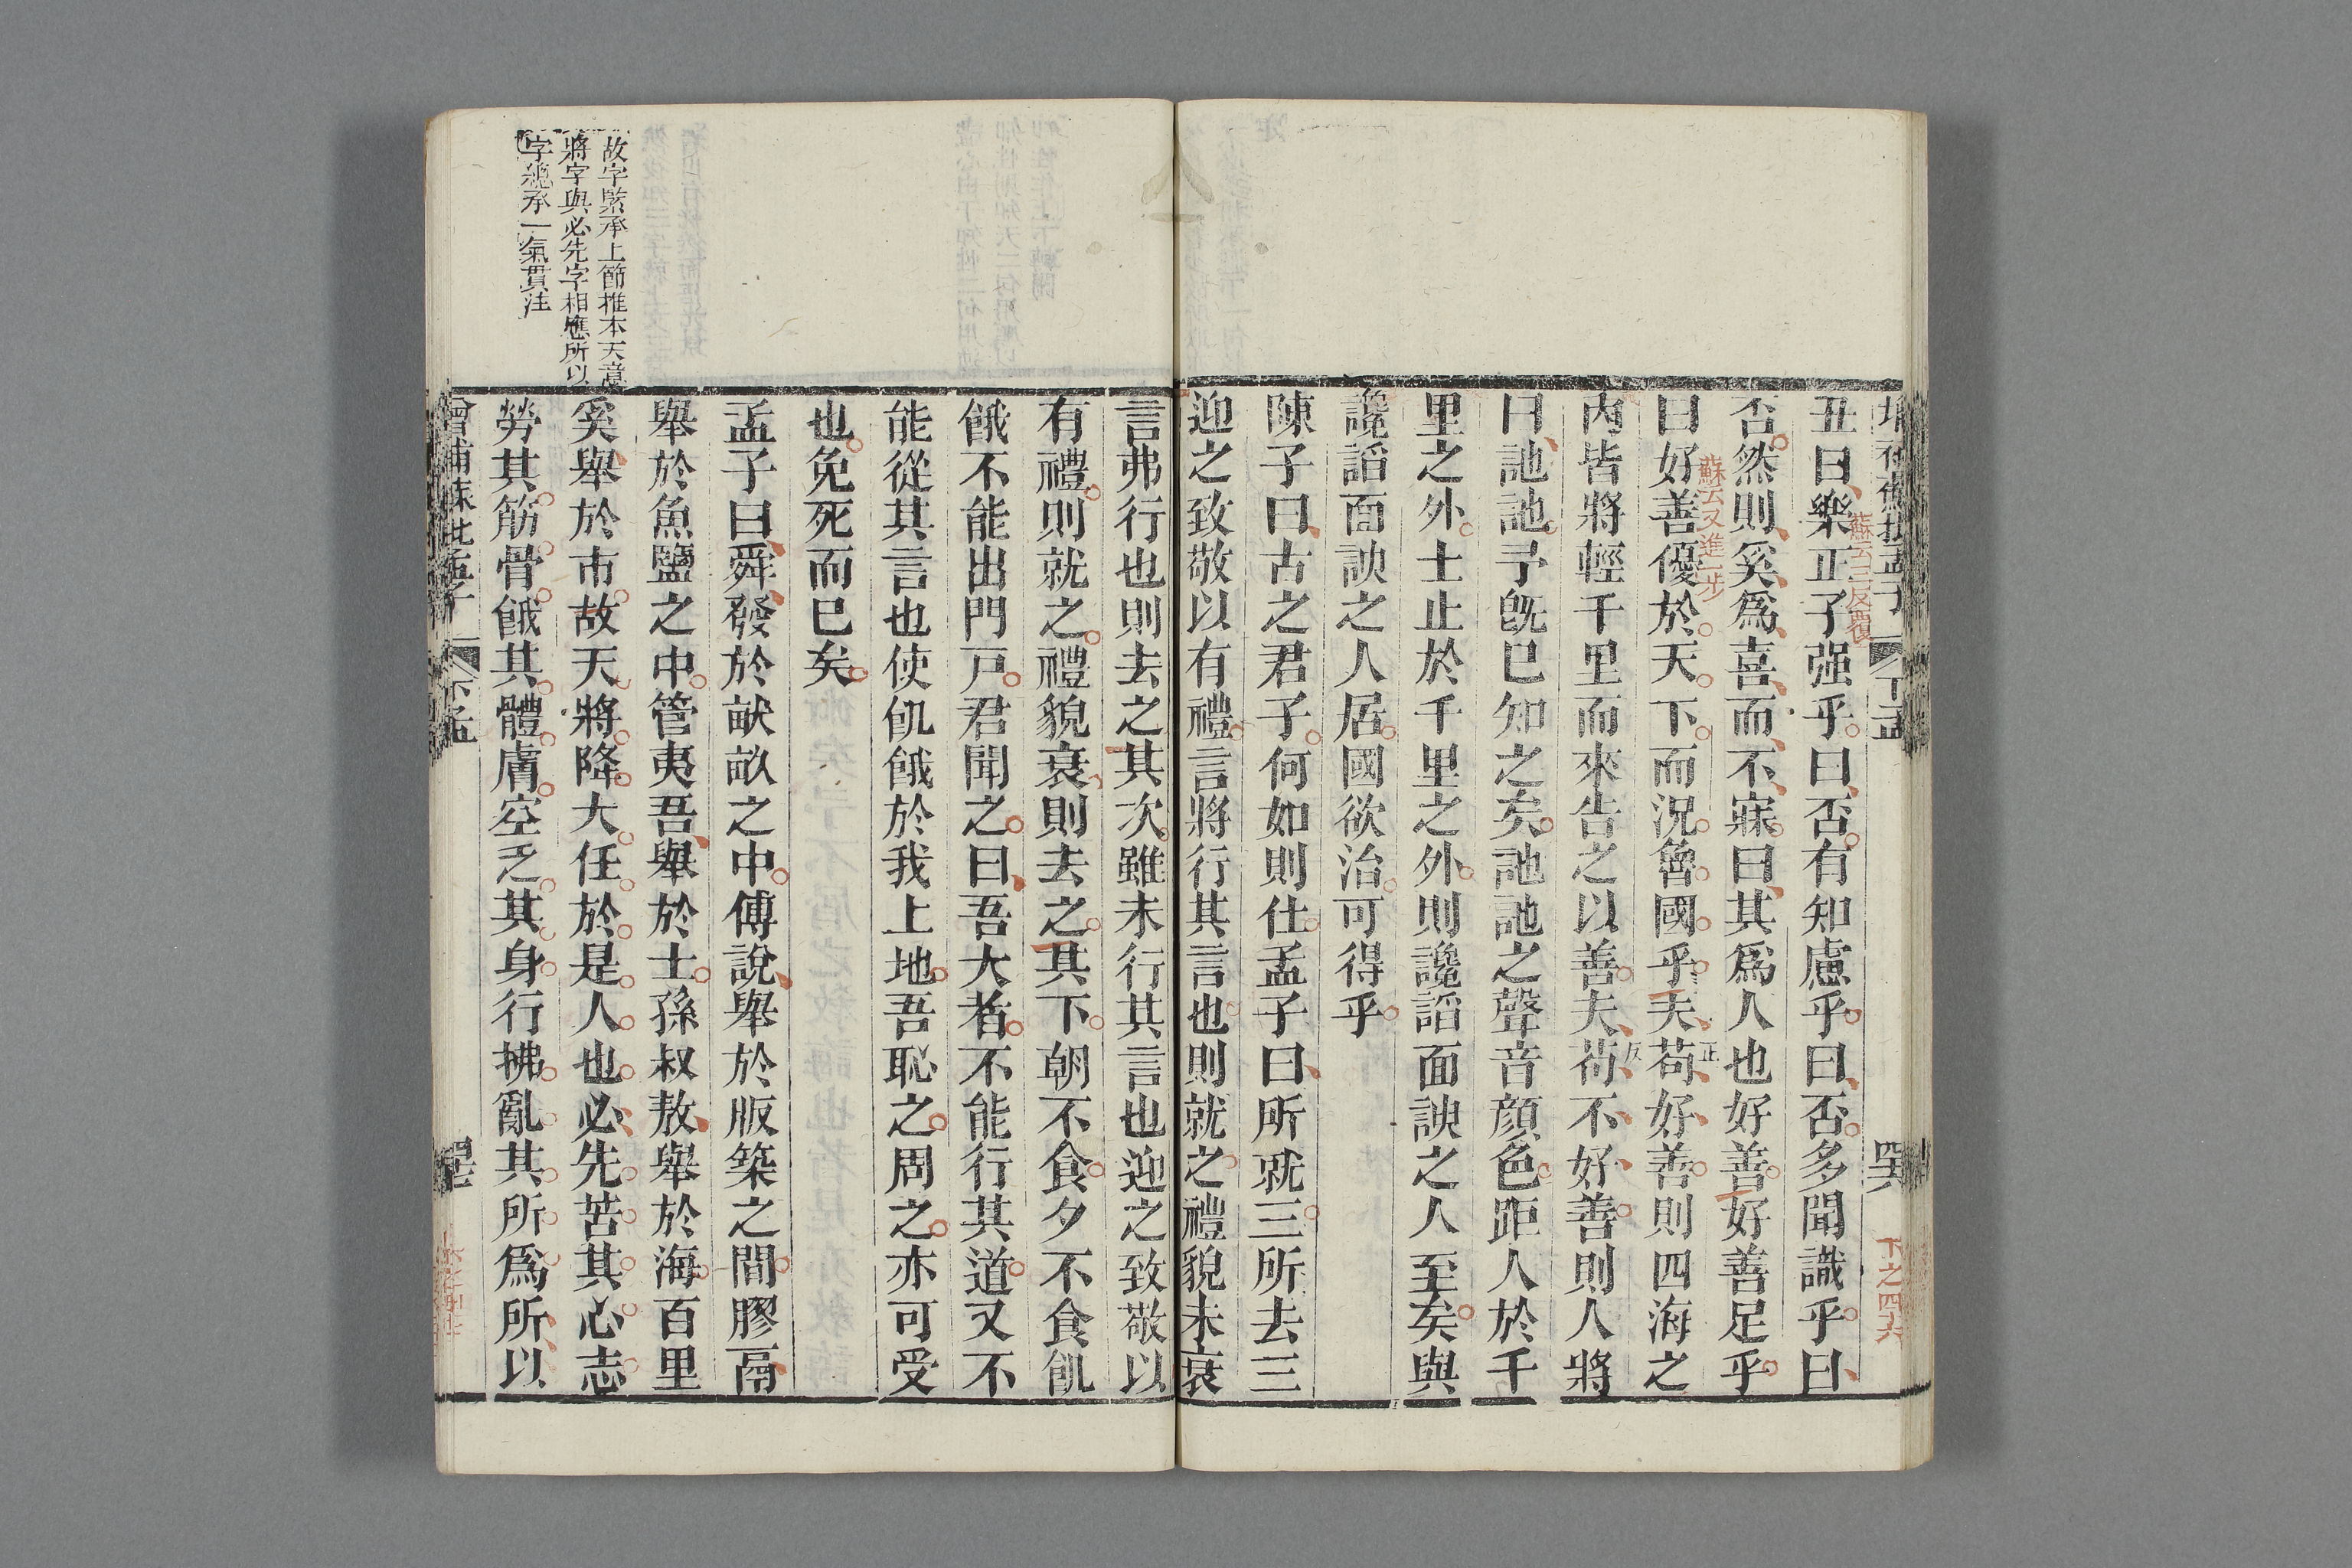 丑曰樂正子强乎曰否有知慮乎曰否多聞識乎曰
蘇云三反覆
否然則奚爲喜而不寐曰其爲人也好善好善足乎
蘇云又進一步
曰好善優於天下而況魯國乎夫苟好善則四海之
正
內皆將輕千里而來告之以善夫苟不好善則人將
反
曰訑訑予旣已知之矣訑訑之聲音顏色距人於千
里之外士止於千里之外則讒諂面諛之人至矣與
讒諂面諛之人居國欲治可得乎
陳子曰古之君子何如則仕孟子曰所就三所去三
迎之致敬以有禮言將行其言也則就之禮貌未衰
言弗行也則去之其次雖未行其言也迎之致敬以
有禮則就之禮貌衰則去之其下朝不食夕不食飢
餓不能出門戸君聞之曰吾大者不能行其道又不
能從其言也使飢餓於我土地吾恥之周之亦可受
也免死而已矣
孟子曰舜發於畎畝之中傅說舉於版築之間膠鬲
舉於魚鹽之中管夷吾舉於士孫叔敖舉於海百里
奚舉於市故天將降大任於是人也必先苦其心志
勞其筋骨餓其體膚空乏其身行拂亂其所爲所以
故字緊承上節推本天意
將字與必先字相應所以
字總承一氣貫注
增補蘇批孟子
下孟
下之四六